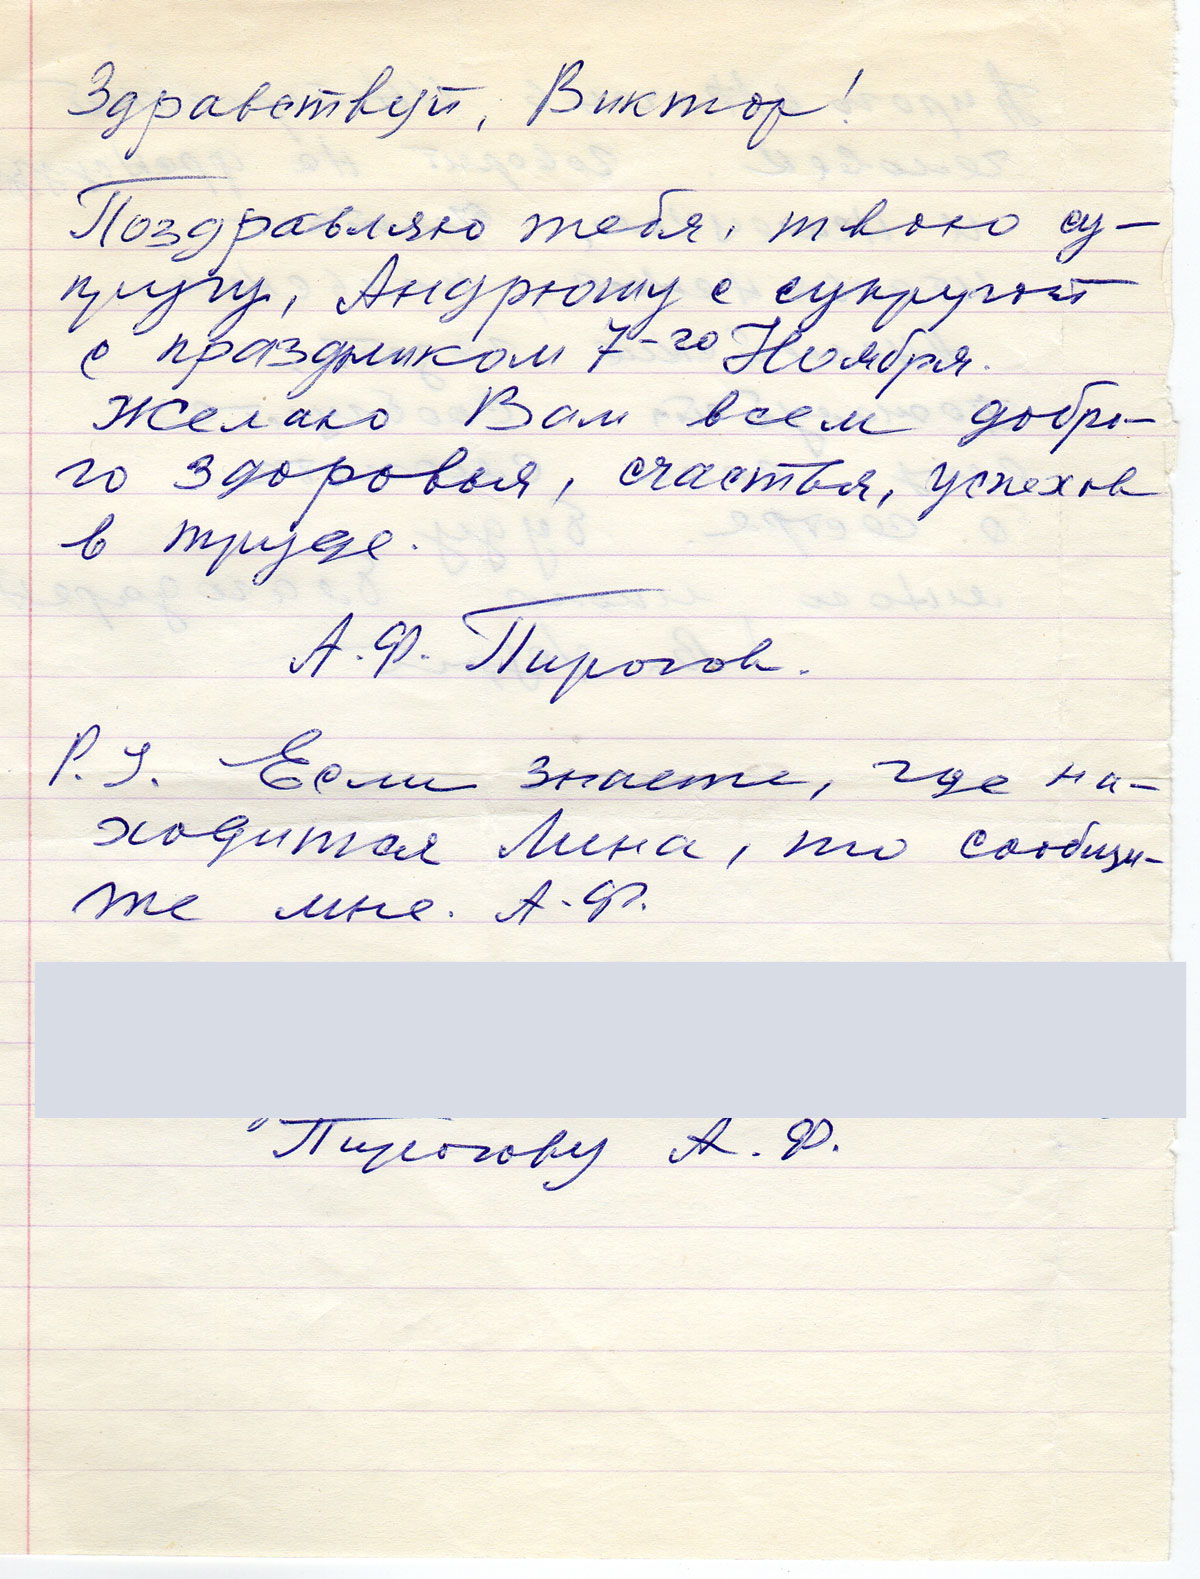 Здравствуй, Виктор!
Поздравляю тебя, твою су-
пругу, Андрюшу с супругой
с праздником 7-го Ноября.
Желаю Вам всем добро-
го здоровья, счастья, успехов
в труде.
А.Ф. Пирогов.
P.S. Если знаете, где на-
ходится Лина, то сообщи-
те мне. А.Ф.
Пирогову А.Ф.